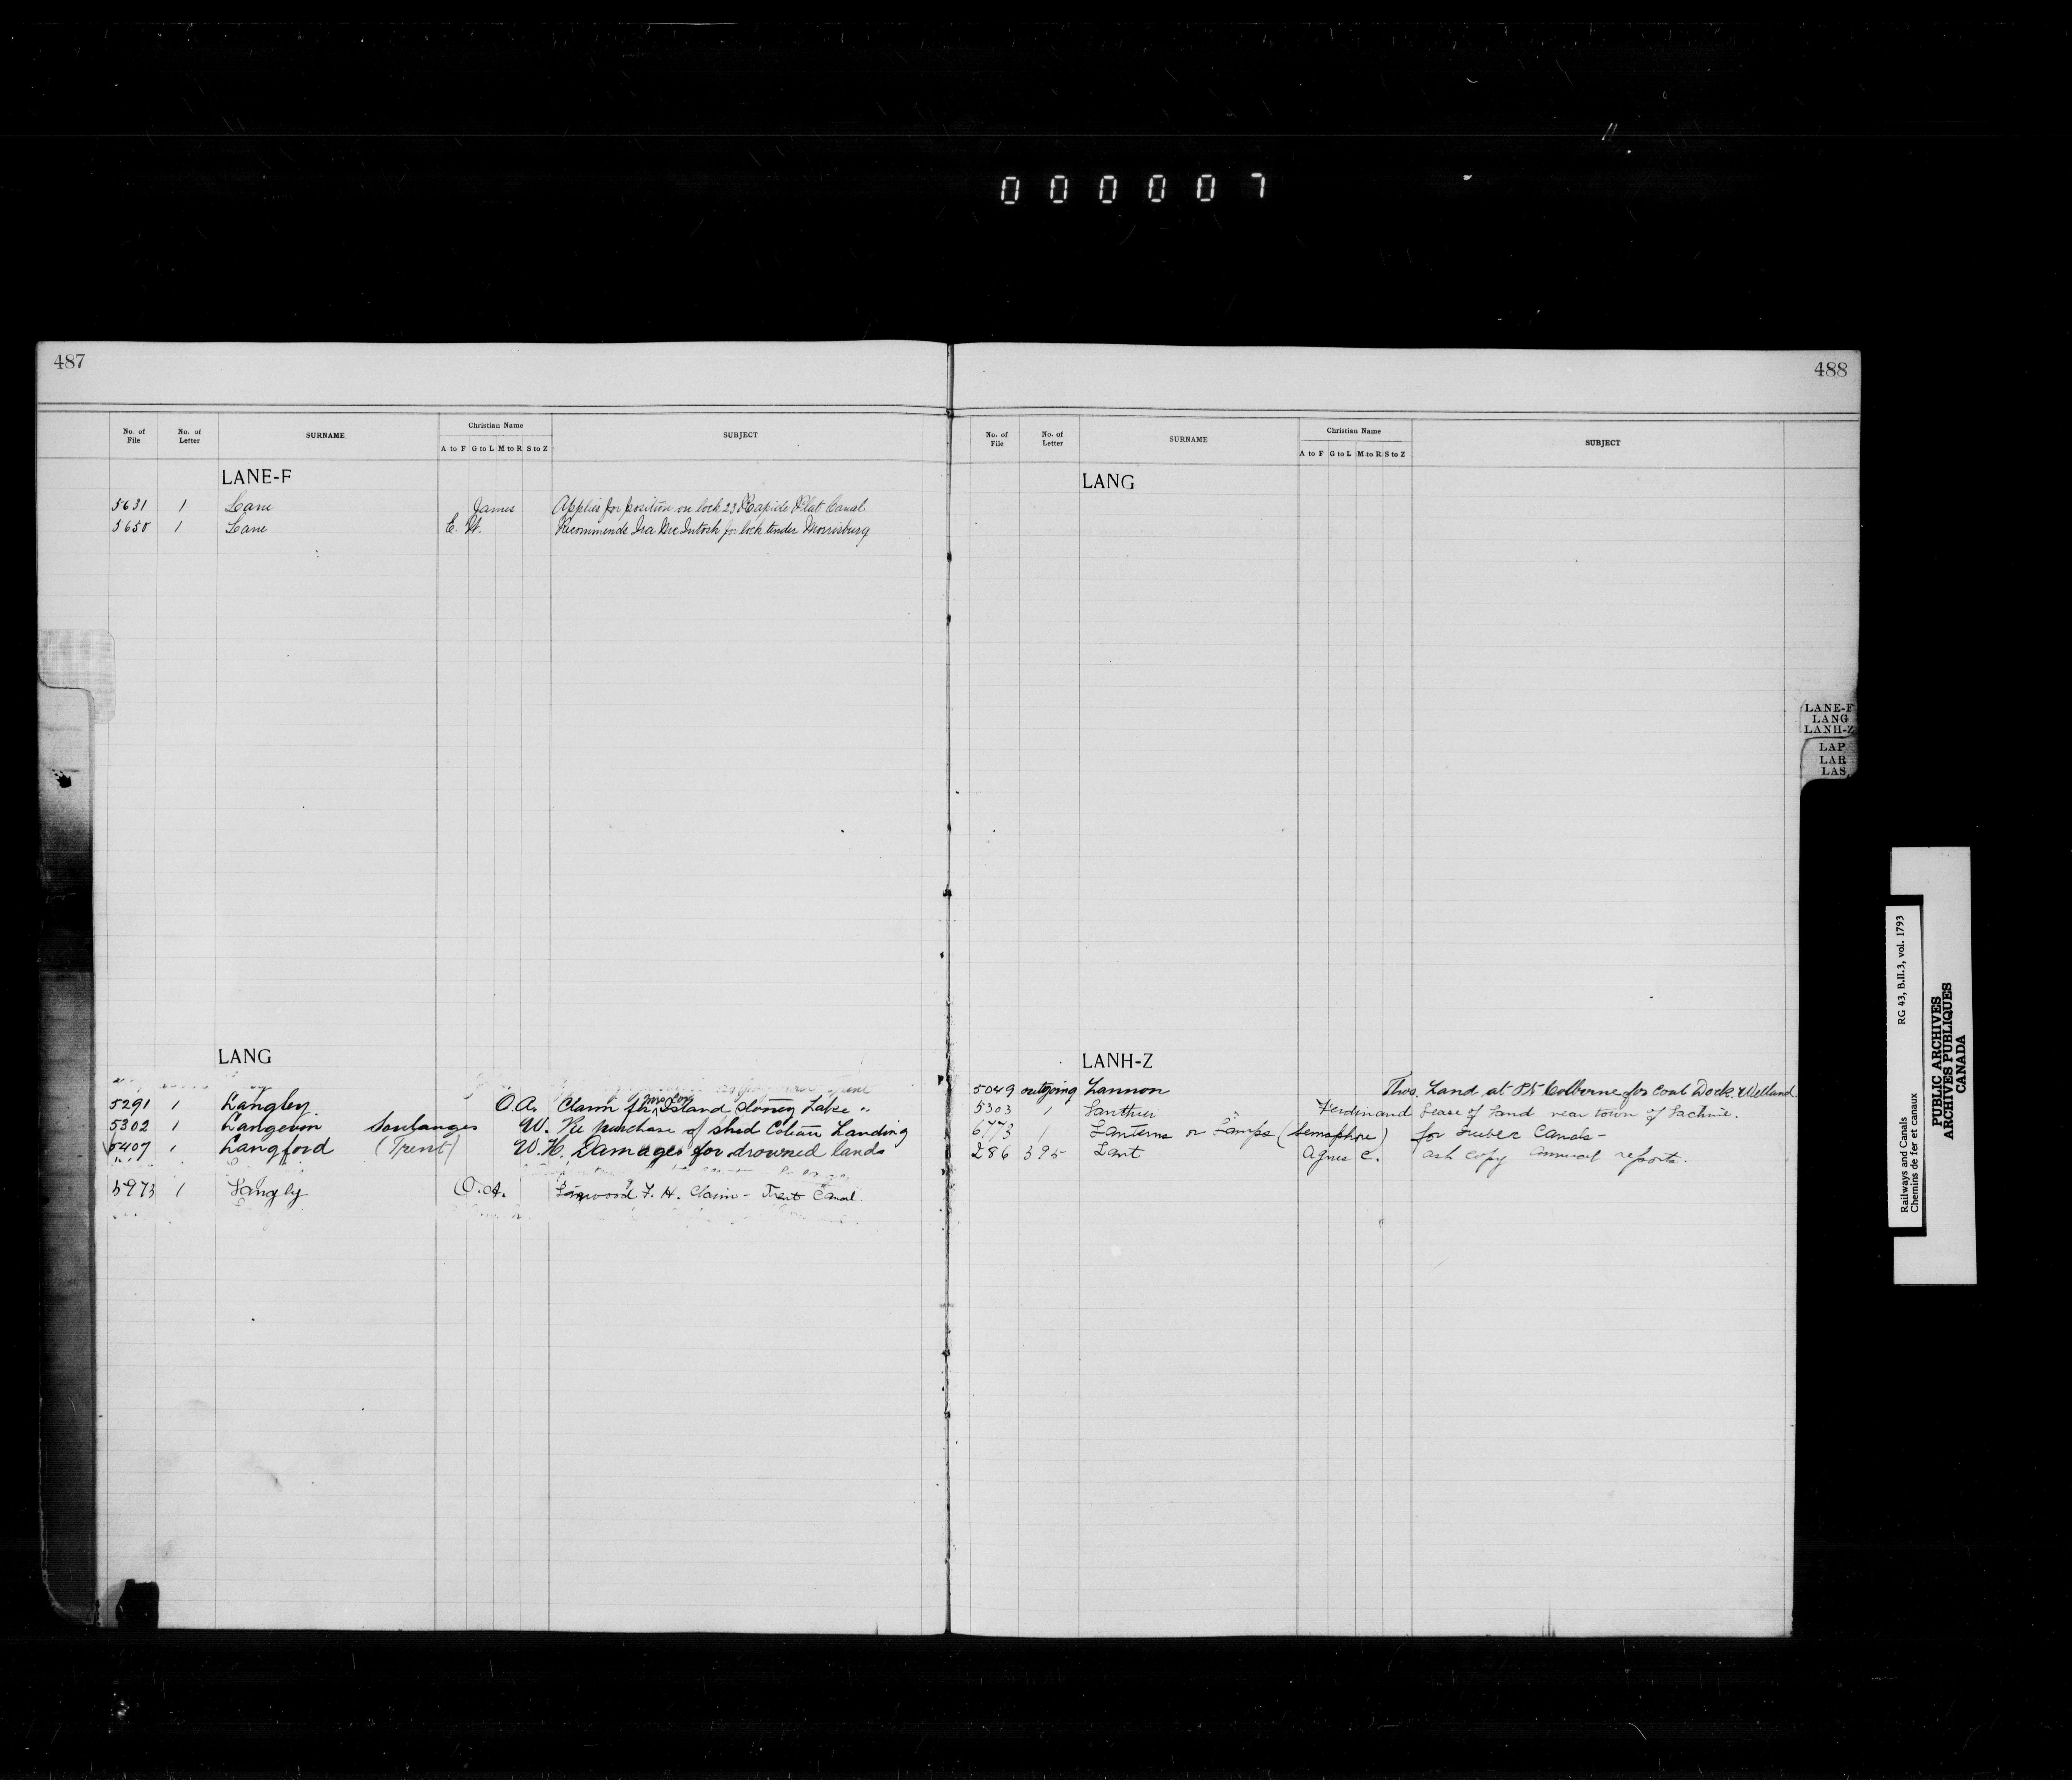 000007
487
No. of File No. of Letter SURNAME Christian Name A to F G to L M to R S to Z SUBJECT
LANE-F
5631 1 Lane James Applies for position on lock 23 Rapide Plat Canal
5650 1 Lane E. H. Recommends Ira McIntosh for lock tender Morrisburg
LANG
5291 1 Langley O.A. Claim for Island Stoney Lake "
5302 1 Langevin Soulanges W. Re purchase of shed Coteau Landing
5407 1 Langford (Trent) W.H. Damages for drowned lands
5973 1 Langly O.A. F. H. Claim - Trent Canal.
488
No. of File No. of Letter SURNAME Christian Name A to F G to L M to R S to Z SUBJECT
LANG
LANH-Z
5049 outgoing Lannon Thos. Land at Pt Colborne for Coal Dock. Welland.
5303 1 Lanthier Ferdinand Lease of Land near town of Lachine.
6773 1 Lanterns or Lamps (Semaphore) for Quebec Canals -
286 395 Lant Agnes C. ask copy annual reports.
LANE-F
LANG
LANH-Z
LAP
LAR
LAS
Railways and Canals RG 43, B.II.3, vol. 1793
Chemins de fer et canaux
PUBLIC ARCHIVES
ARCHIVES PUBLIQUES
CANADA